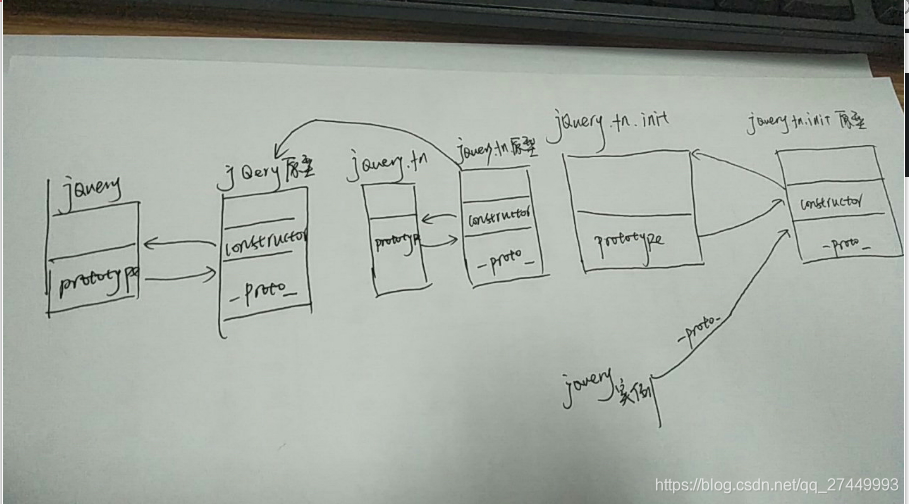 jQuery
prototype
jQery原型
constructor
_proto_
jQuery.fn
prototype
jquery.fn原型
constructor
_proto_
jQuery.fn.init
prototype
jquery.fn.init 原型
constructor
_proto_
_proto_
jquery实例
https://blog.csdn.net/qq_27449993